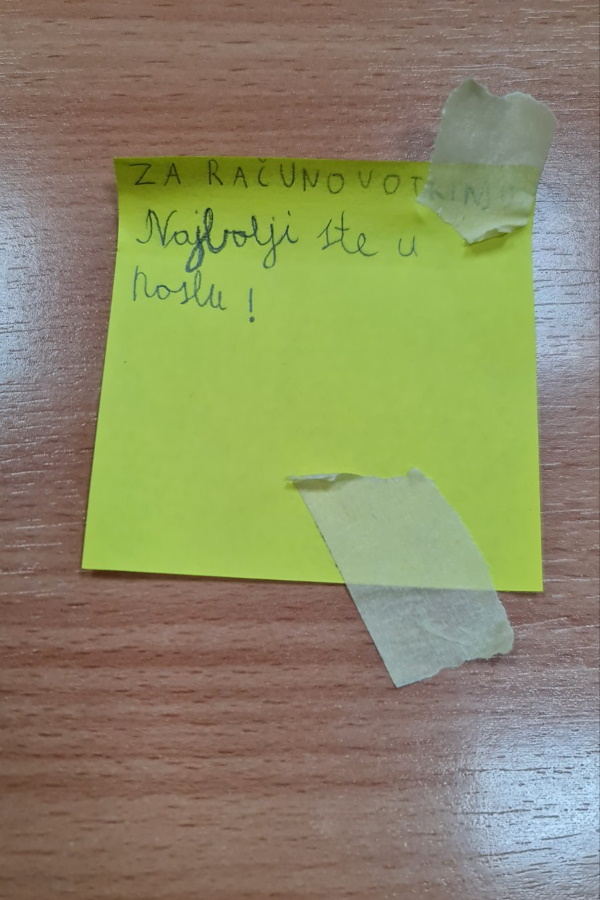 ZA
Najbolji ste u
poslu!